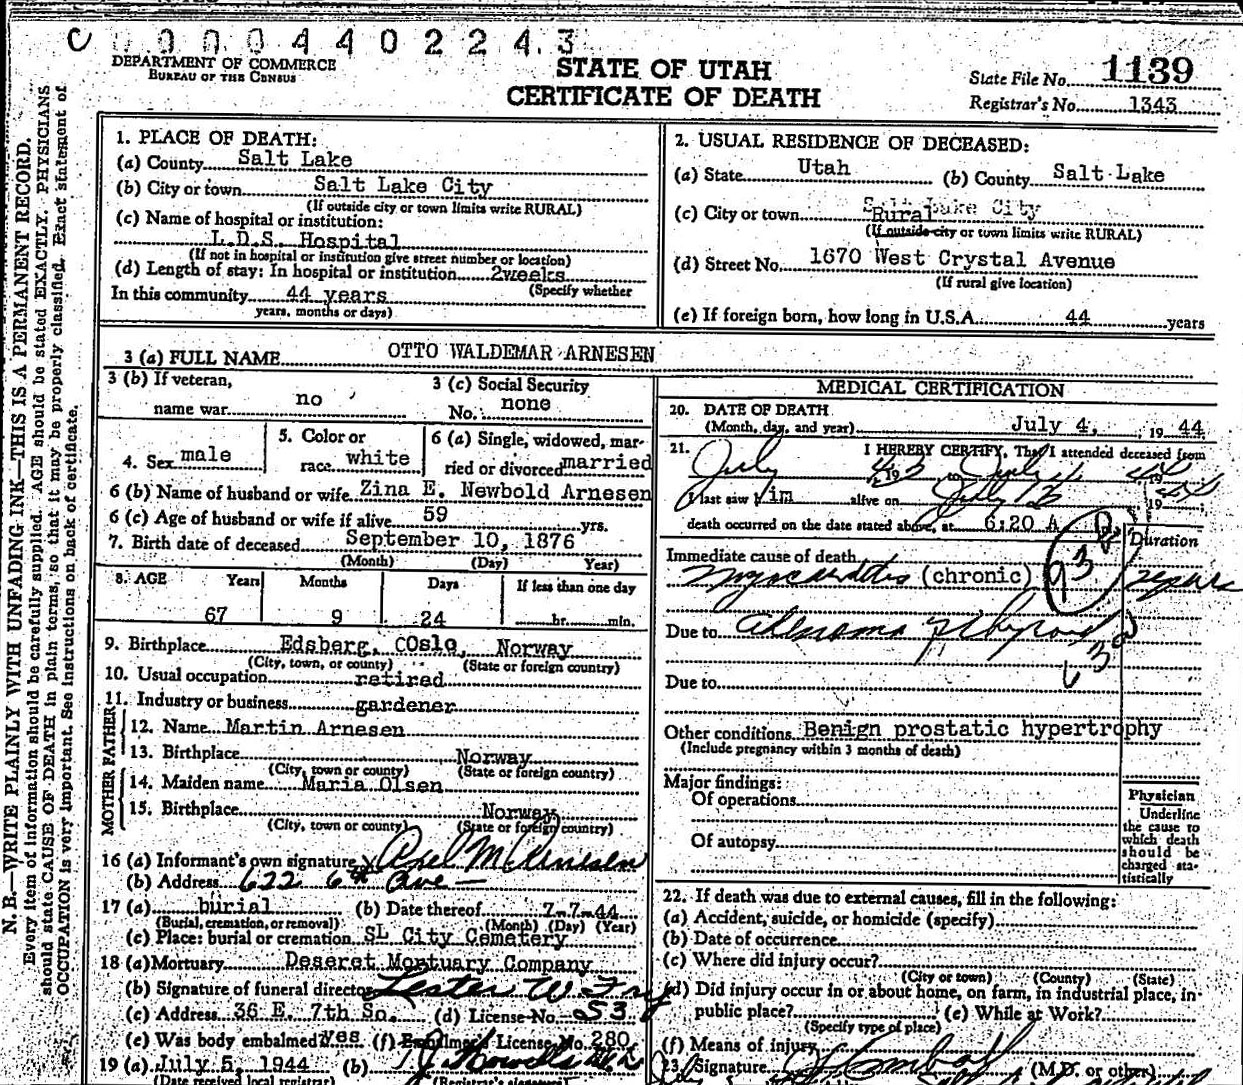 C 0 0 0 0 4 4 0 2 2 4 3
DEPARTMENT OF COMMERCE
BUREAU OF THE CENSUS
STATE OF UTAH
CERTIFICATE OF DEATH
State File No. 1139
Registrar's No. 1343
N. B.—WRITE PLAINLY WITH UNFADING INK—THIS IS A PERMANENT RECORD.
Every item of information should be carefully supplied. AGE should be stated EXACTLY. PHYSICIANS
should state CAUSE OF DEATH in plain terms, so that it may be properly classified. Exact statement of
OCCUPATION is very important. See instructions on back of certificate.
1. PLACE OF DEATH:
(a) County Salt Lake
(b) City or town Salt Lake City
(If outside city or town limits write RURAL)
(c) Name of hospital or institution:
L.D.S. Hospital
(If not in hospital or institution give street number or location)
(d) Length of stay: In hospital or institution 2weeks
(Specify whether
In this community 44 years
years, months or days)
2. USUAL RESIDENCE OF DECEASED:
(a) State Utah (b) County Salt Lake
(c) City or town Salt Lake City
Rural
(If outside city or town limits write RURAL)
(d) Street No. 1670 West Crystal Avenue
(If rural give location)
(e) If foreign born, how long in U.S.A. 44 years
3 (a) FULL NAME OTTO WALDEMAR ARNESEN
3 (b) If veteran, name war no
3 (c) Social Security No. none
4. Sex male
5. Color or race white
6 (a) Single, widowed, married or divorced married
6 (b) Name of husband or wife Zina E. Newbold Arnesen
6 (c) Age of husband or wife if alive 59 yrs.
7. Birth date of deceased September 10, 1876
(Month) (Day) Year)
8. AGE Years Months Days If less than one day
67 9 24 hr. min.
9. Birthplace Edsberg, Oslo, Norway
(City, town, or county) (State or foreign country)
10. Usual occupation retired
11. Industry or business gardener
FATHER
12. Name Martin Arnesen
13. Birthplace Norway
(City, town or county) (State or foreign country)
MOTHER
14. Maiden name Maria Olsen
15. Birthplace Norway
(City, town or county) (State or foreign country)
16 (a) Informant's own signature x Axel M Arnesen
(b) Address 622 6th Ave
17 (a) burial (b) Date thereof 7-7-44
(Burial, cremation, or removal) (Month) (Day) (Year)
(c) Place: burial or cremation SL City Cemetery
18 (a) Mortuary Deseret Mortuary Company
(b) Signature of funeral director Lester W Fry
(c) Address 36 E. 7th So. (d) License No. 53
(e) Was body embalmed? yes (f) Embalmer's License No. 280
19 (a) July 5, 1944 (b)
(Date received local registrar) (Registrar's signature)
MEDICAL CERTIFICATION
20. DATE OF DEATH
(Month, day, and year) July 4, 1944
21. I HEREBY CERTIFY, That I attended deceased from
July 1943 to July 4 1944
I last saw him alive on July 1944
death occurred on the date stated above, at 6:20 A
Duration
Immediate cause of death
Myocarditis (chronic) years
93
Due to Adenoma of Thyroid
63
Due to
Other conditions Benign prostatic hypertrophy
(Include pregnancy within 3 months of death)
Major findings:
Of operations
Of autopsy
Physician
Underline
the cause to
which death
should be
charged sta-
tistically
22. If death was due to external causes, fill in the following:
(a) Accident, suicide, or homicide (specify)
(b) Date of occurrence
(c) Where did injury occur?
(City or town) (County) (State)
(d) Did injury occur in or about home, on farm, in industrial place, in
public place? (e) While at Work?
(Specify type of place)
(f) Means of injury
23. Signature (M.D. or other)